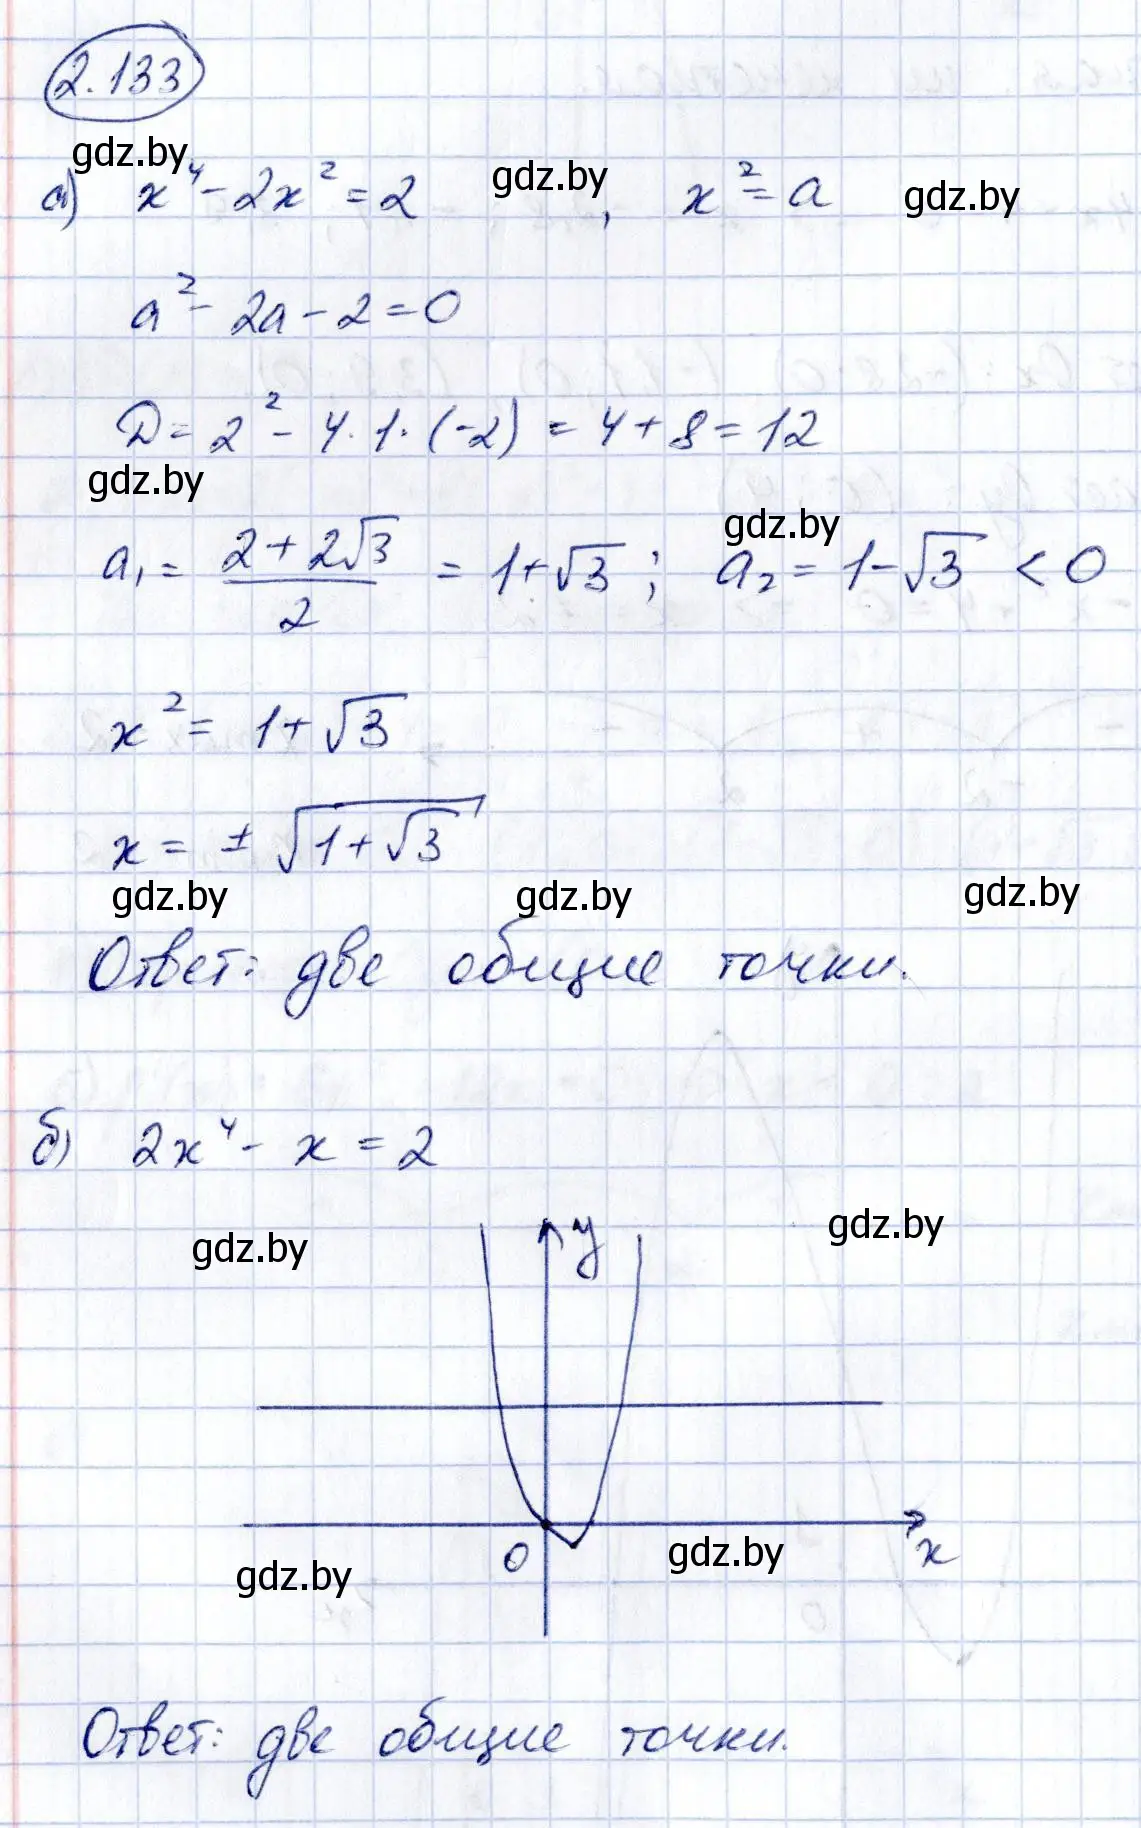 2.133
gdz.by
а) x⁴ - 2x² = 2 , x² = a
gdz.by
gdz.by
a² - 2a - 2 = 0
D = 2² - 4 · 1 · (-2) = 4 + 8 = 12
gdz.by
gdz.by
a₁ = (2 + 2√3)/2 = 1 + √3 ; a₂ = 1 - √3 < 0
x² = 1 + √3
x = ± √(1 + √3)
gdz.by gdz.by gdz.by
Ответ: две общие точки.
б) 2x⁴ - x = 2
gdz.by
y
gdz.by
0
gdz.by
x
gdz.by
Ответ: две общие точки.